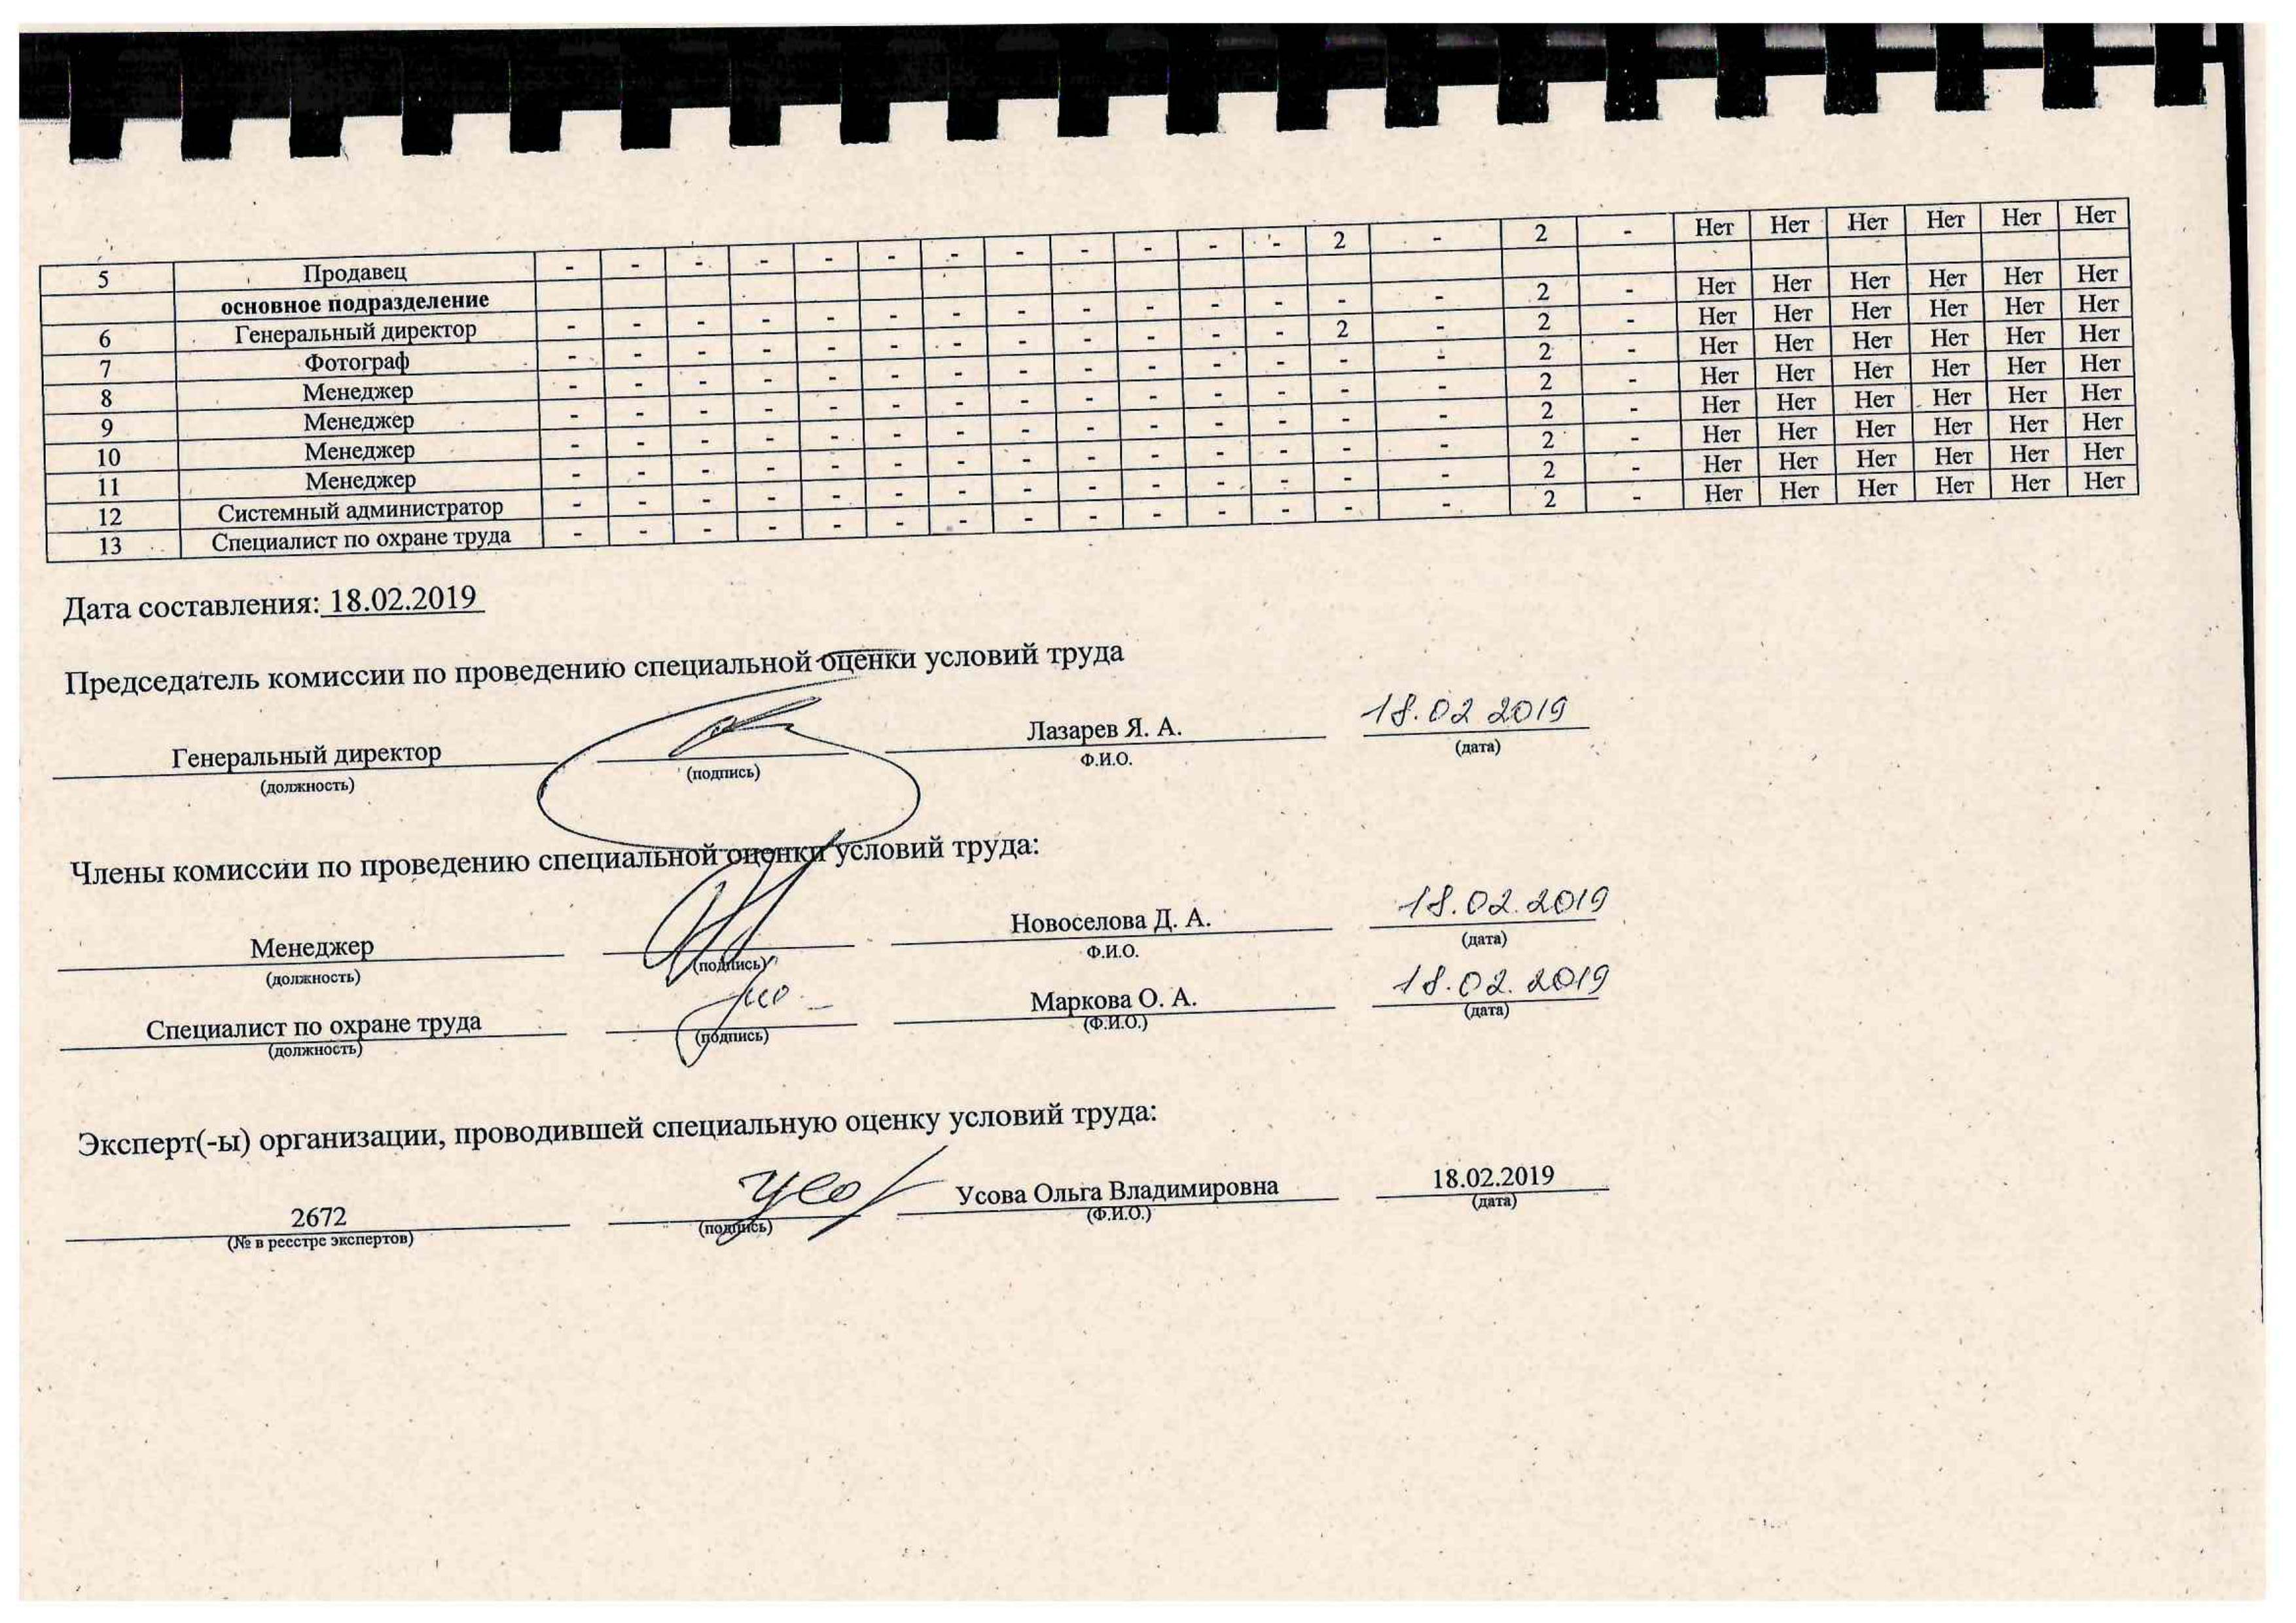 5 Продавец - - - - - - - - - - - - 2 - 2 - Нет Нет Нет Нет Нет Нет
основное подразделение
6 Генеральный директор - - - - - - - - - - - - - - 2 - Нет Нет Нет Нет Нет Нет
7 Фотограф - - - - - - - - - - - - 2 - 2 - Нет Нет Нет Нет Нет Нет
8 Менеджер - - - - - - - - - - - - - - 2 - Нет Нет Нет Нет Нет Нет
9 Менеджер - - - - - - - - - - - - - - 2 - Нет Нет Нет Нет Нет Нет
10 Менеджер - - - - - - - - - - - - - - 2 - Нет Нет Нет Нет Нет Нет
11 Менеджер - - - - - - - - - - - - - - 2 - Нет Нет Нет Нет Нет Нет
12 Системный администратор - - - - - - - - - - - - - - 2 - Нет Нет Нет Нет Нет Нет
13 Специалист по охране труда - - - - - - - - - - - - - - 2 - Нет Нет Нет Нет Нет Нет
Дата составления: 18.02.2019
Председатель комиссии по проведению специальной оценки условий труда
Генеральный директор Лазарев Я. А. 18.02 2019
(должность) (подпись) Ф.И.О. (дата)
Члены комиссии по проведению специальной оценки условий труда:
Менеджер Новоселова Д. А. 18.02.2019
(должность) (подпись) Ф.И.О. (дата)
Специалист по охране труда Маркова О. А. 18.02.2019
(должность) (подпись) (Ф.И.О.) (дата)
Эксперт(-ы) организации, проводившей специальную оценку условий труда:
2672 Усова Ольга Владимировна 18.02.2019
(№ в реестре экспертов) (подпись) (Ф.И.О.) (дата)